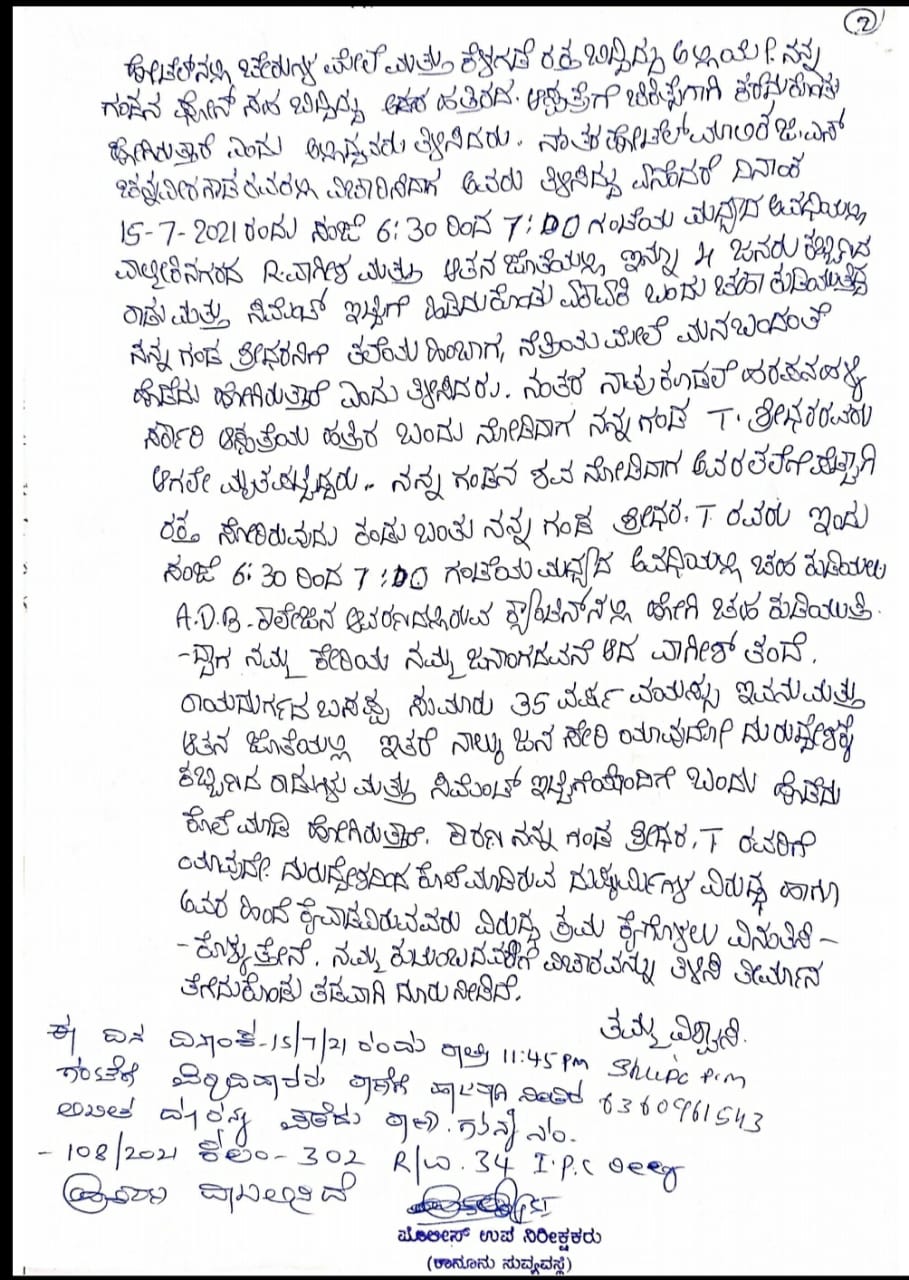 2
ಹೋಟೆಲ್‌ನಲ್ಲಿ ಚೇರುಗಳ ಮೇಲೆ ಮತ್ತು ಕೆಳಗಡೆ ರಕ್ತ ಬಿದ್ದಿದ್ದು ಅಲ್ಲಿಯೇ ನನ್ನ
ಗಂಡನ ಫೋನ್ ಸಹ ಬಿದ್ದಿದ್ದು ಹತ್ತಿರದ ಆಸ್ಪತ್ರೆಗೆ ಚಿಕಿತ್ಸೆಗಾಗಿ ಕರೆದುಕೊಂಡು
ಹೋಗಿರುತ್ತಾರೆ ಎಂದು ಅಲ್ಲಿದ್ದವರು ತಿಳಿಸಿದರು. ನಂತರ ಹೋಟೆಲ್ ಮಾಲೀಕರ ಜಿ.ಎಸ್
ಚನ್ನವೀರಗೌಡ ರವರಲ್ಲಿ ವಿಚಾರಿಸಿದಾಗ ಅವರು ತಿಳಿಸಿದ್ದು ಏನೆಂದರೆ ದಿನಾಂಕ
15-7-2021 ರಂದು ಸಂಜೆ 6:30 ರಿಂದ 7:00 ಗಂಟೆಯ ಮಧ್ಯದ ಅವಧಿಯಲ್ಲಿ
ವಾಲ್ಮೀಕಿನಗರದ R.ವಾಗೀಶ ಮತ್ತು ಆತನ ಜೊತೆಯಲ್ಲಿ ಇನ್ನೂ 4 ಜನರು ಕಬ್ಬಿಣದ
ರಾಡು ಮತ್ತು ಸಿಮೆಂಟ್ ಇಟ್ಟಿಗೆ ಹಿಡಿದುಕೊಂಡು ಏಕಾಏಕಿ ಬಂದು ಚಹಾ ಕುಡಿಯುತ್ತಿದ್ದ
ನನ್ನ ಗಂಡ ಶ್ರೀಧರನಿಗೆ ತಲೆಯ ಹಿಂಬಾಗ, ನೆತ್ತಿಯ ಮೇಲೆ ಮನಬಂದಂತೆ
ಹೊಡೆದು ಹೋಗಿರುತ್ತಾರೆ ಎಂದು ತಿಳಿಸಿದರು. ನಂತರ ನಾವು ಕೂಡಲೆ ಹರಪನಹಳ್ಳಿ
ಸರ್ಕಾರಿ ಆಸ್ಪತ್ರೆಯ ಹತ್ತಿರ ಬಂದು ನೋಡಿದಾಗ ನನ್ನ ಗಂಡ T. ಶ್ರೀಧರರವರು
ಆಗಲೇ ಮೃತಪಟ್ಟಿದ್ದರು.. ನನ್ನ ಗಂಡನ ಶವ ನೋಡಿದಾಗ ಅವರ ತಲೆಗೆ ಪೆಟ್ಟಾಗಿ
ರಕ್ತ ಸೋರಿರುವುದು ಕಂಡು ಬಂತು ನನ್ನ ಗಂಡ ಶ್ರೀಧರ.T ರವರು ಇಂದು
ಸಂಜೆ 6:30 ರಿಂದ 7:00 ಗಂಟೆಯ ಮಧ್ಯದ ಅವಧಿಯಲ್ಲಿ ಚಹ ಕುಡಿಯಲು
A.D.B-ಕಾಲೇಜಿನ ಆವರಣದಲ್ಲಿರುವ ಕ್ಯಾಂಟಿನ್‌ನಲ್ಲಿ ಹೋಗಿ ಚಹ ಕುಡಿಯುತ್ತಿ
-ದ್ದಾಗ ನಮ್ಮ ಕೇರಿಯ ನಮ್ಮ ಜನಾಂಗದವನೆ ಆದ ವಾಗೀಶ್ ತಂದೆ.
ರಾಯದುರ್ಗದ ಬಸಪ್ಪ ಸುಮಾರು 35 ವರ್ಷ ವಯಸ್ಸು ಇವನು ಮತ್ತು
ಆತನ ಜೊತೆಯಲ್ಲಿ ಇತರೆ ನಾಲ್ಕು ಜನ ಸೇರಿ ಯಾವುದೋ ದುರುದ್ದೇಶಕ್ಕೆ
ಕಬ್ಬಿಣದ ರಾಡುಗಳು ಮತ್ತು ಸಿಮೆಂಟ್ ಇಟ್ಟಿಗೆಯೊಂದಿಗೆ ಬಂದು ಹೊಡೆದು
ಕೊಲೆ ಮಾಡಿ ಹೋಗಿರುತ್ತಾರೆ. ಕಾರಣ ನನ್ನ ಗಂಡ ಶ್ರೀಧರ.T ರವರಿಗೆ
ಯಾವುದೇ ದುರುದ್ದೇಶದಿಂದ ಕೊಲೆ ಮಾಡಿರುವ ದುಷ್ಕರ್ಮಿಗಳ ವಿರುದ್ಧ ಹಾಗೂ
ಅವರ ಹಿಂದೆ ಕೈವಾಡವಿರುವವರು ವಿರುದ್ಧ ಕ್ರಮ ಕೈಗೊಳ್ಳಲು ವಿನಂತಿಸಿ-
-ಕೊಳ್ಳುತ್ತೇನೆ. ನಮ್ಮ ಕುಟುಂಬದವರಿಗೆ ವಿಚಾರವನ್ನು ತಿಳಿಸಿ ತೀರ್ಮಾನ
ತೆಗೆದುಕೊಂಡು ತಡವಾಗಿ ದೂರು ನೀಡಿದೆ.
ತಮ್ಮ ವಿಶ್ವಾಸಿ.
ಈ ದಿನ ದಿನಾಂಕ-15/7/21 ರಂದು ರಾತ್ರಿ 11:45 pm
ಗಂಟೆಗೆ ಪಿರ್ಯಾದಿದಾರರು ಠಾಣೆಗೆ ಹಾಜರಾಗಿ ನೀಡಿದ 6360961543
ಲಿಖಿತ ದೂರನ್ನು ಪಡೆದು ಠಾಣಾ ಗುನ್ನೆ ನಂ.
-108/2021 ಕಲಂ-302 R/W. 34 I.P.C
ಪ್ರಕರಣ ದಾಖಲಿಸಿದೆ
PSI
ಪೊಲೀಸ್ ಉಪ ನಿರೀಕ್ಷಕರು
(ಕಾನೂನು ಸುವ್ಯವಸ್ಥೆ)